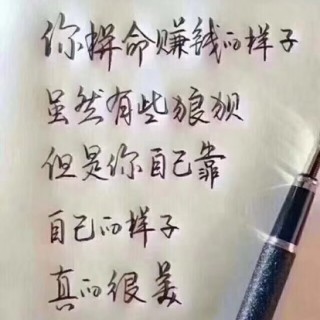 你拼命赚钱的样子
虽然有些狼狈
但是你自己靠
自己的样子
真的很美